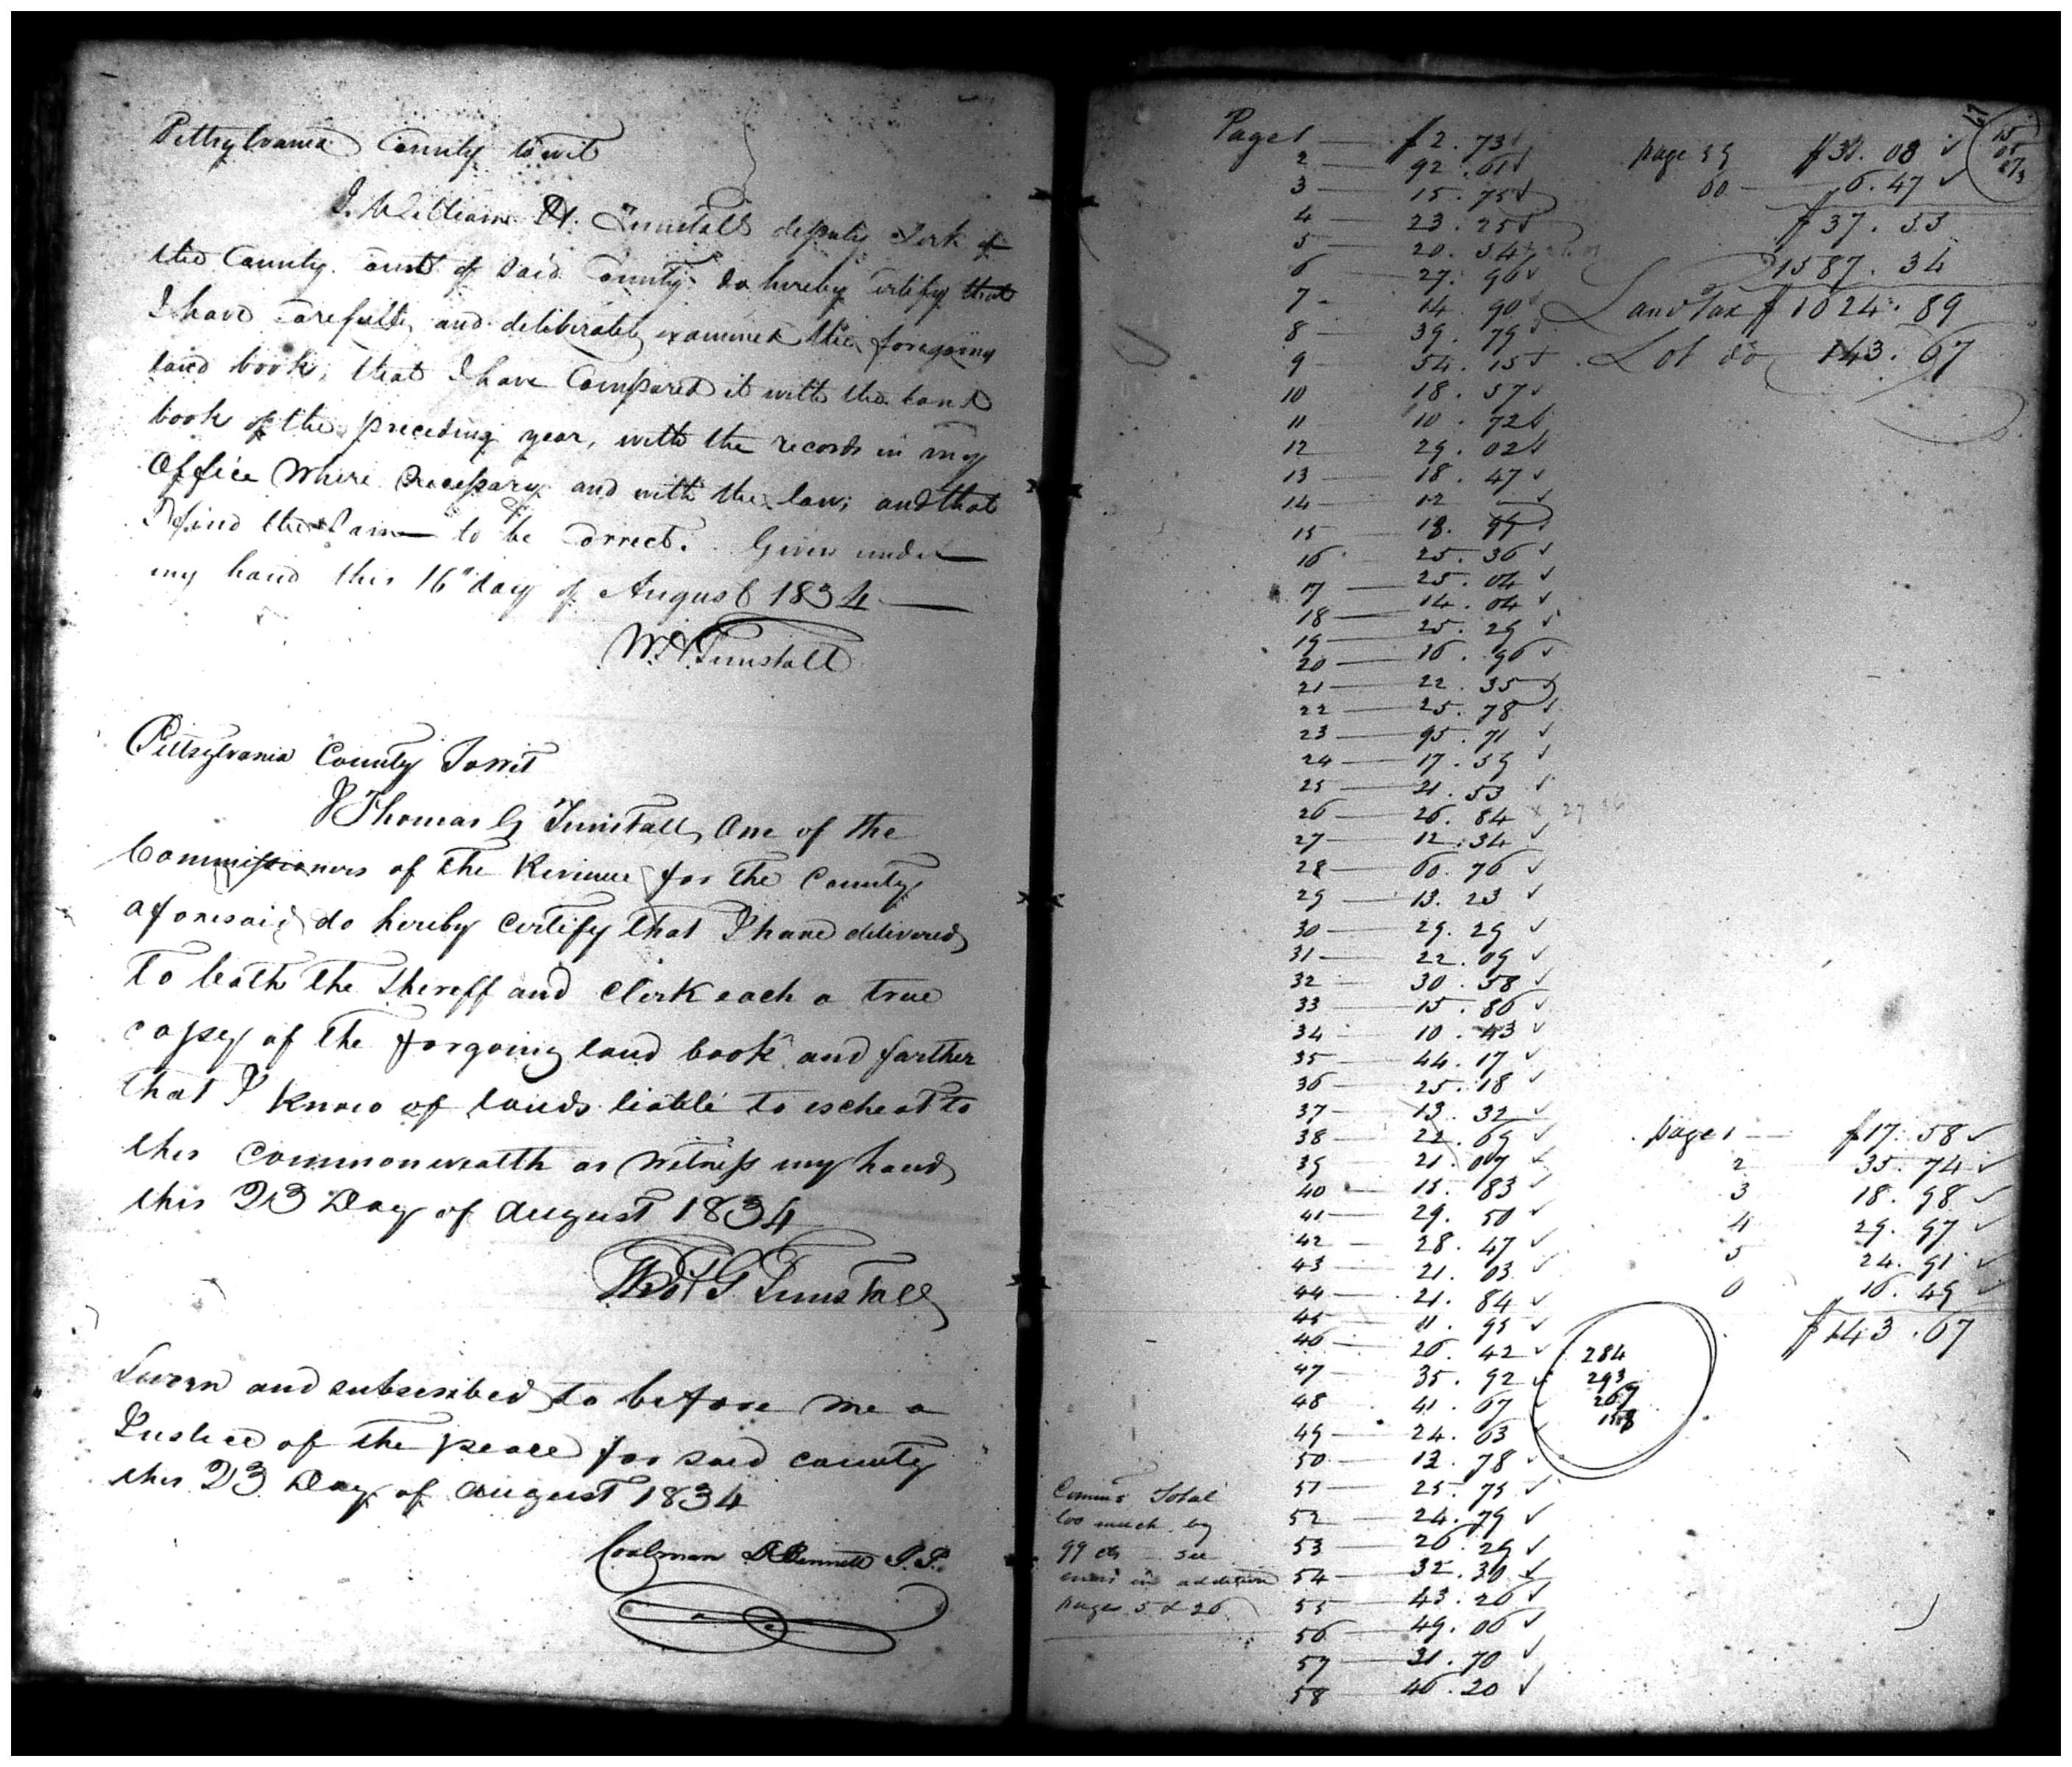 Pittsylvania County towit
I. William H. Tunstall deputy clerk of
the County court of said County do hereby certify that
I have carefully and deliberately examined the foregoing
land book; that I have compared it with the land
book of the preceding year, with the records in my
office where necessary and with the law; and that
I find the same to be correct. Given under
my hand this 16th day of August 1834
W H Tunstall
Pittsylvania County Towit
I Thomas G Tunstall One of the
Commissioners of the Revenue for the County
aforesaid do hereby certify that I have delivered
to boath the Shereff and Clerk each a true
copey of the forgoing land book and farther
that I know of lands liable to escheat to
this commonwealth as witness my hand
this 23 Day of august 1834
Thos G Tunstall
Sworn and subscribed to before me a
Justice of the peace for said county
this 23 Day of august 1834
Coalman D Bennett J. P.
Page 1 — $2.73
2 92.61
3 — 15.75
4 — 23.25
5 — 20.34
6 — 27.96
7 — 14.90
8 — 39.79
9 — 54.15
10 18.57
11 10.72
12 29.02
13 — 18.47
14 — 12 —
15 — 18.
16 25.36
17 — 25.04
18 — 14.04
19 — 25.29
20 — 16.96
21 — 22.35
22 — 25.78
23 — 95.71
24 — 17.59
25 — 21.53
26 — 26.84
27 — 12.34
28 — 60.76
29 — 13.23
30 — 29.29
31 — 22.09
32 — 30.58
33 — 15.86
34 — 10.43
35 — 44.17
36 — 25.18
37 — 13.32
38 — 22.69
39 — 21.07
40 — 15.83
41 — 29.50
42 — 28.47
43 — 21.03
44 — 21.84
45 — 11.95
46 — 26.42
47 — 35.92
48 — 41.67
49 — 24.63
50 — 12.78
51 — 25.75
52 — 24.79
53 — 26.29
54 — 32.30
55 — 43.26
56 — 49.06
57 — 31.70
58 — 46.20
Total
too much by
99 cts see
error in addition
pages 5 & 26
page 59 $31.08
60 — 6.47
$37.55
1587.34
Land Tax $1624.89
Lot do 143.67
page 1 — $17.58
2 35.74
3 18.98
4 29.97
5 24.91
6 16.49
$143.67
284
293
267
158